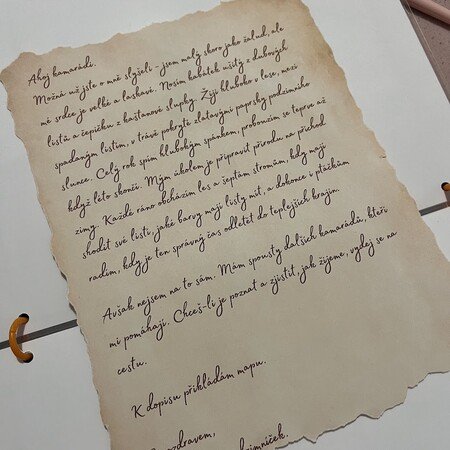 Ahoj kamarádi,
Možná už jste o mně slyšeli - jsem malý skoro jako žalud, ale
mé srdce je velké a laskavé. Nosím kabátek ušitý z dubových
listů a čepičku z kaštanové slupky. Žiji hluboko v lese, mezi
spadaným listím, v trávě pokryté zlatavými paprsky podzimního
slunce. Celý rok spím hlubokým spánkem, probouzím se teprve až
když léto skončí. Mým úkolem je připravit přírodu na příchod
zimy. Každé ráno obcházím les a šeptám stromům, kdy mají
shodit své listí, jaké barvy mají listy mít, a dokonce i ptáčkům
radím, kdy je ten správný čas odletět do teplejších krajin.
Avšak nejsem na to sám. Mám spousty dalších kamarádů, kteří
mi pomáhají. Chceš-li je poznat a zjistit, jak žijeme, vydej se na
cestu.
K dopisu přikládám mapu.
pozdravem,